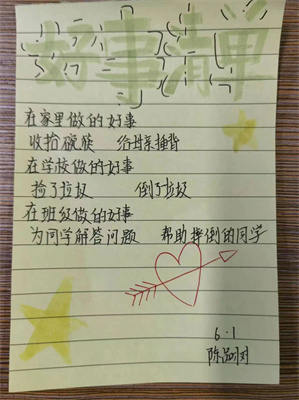 好事清单
在家里做的好事
收拾碗筷 给母亲捶背
在学校做的好事
捡了垃圾 倒了垃圾
在班级做的好事
为同学解答问题 帮助摔倒的同学
6·1